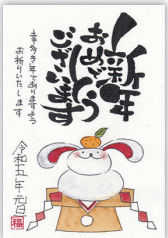 新年
おめでとう
ございます
幸多き年でありますよう
お祈りいたします
令和五年 元旦
福